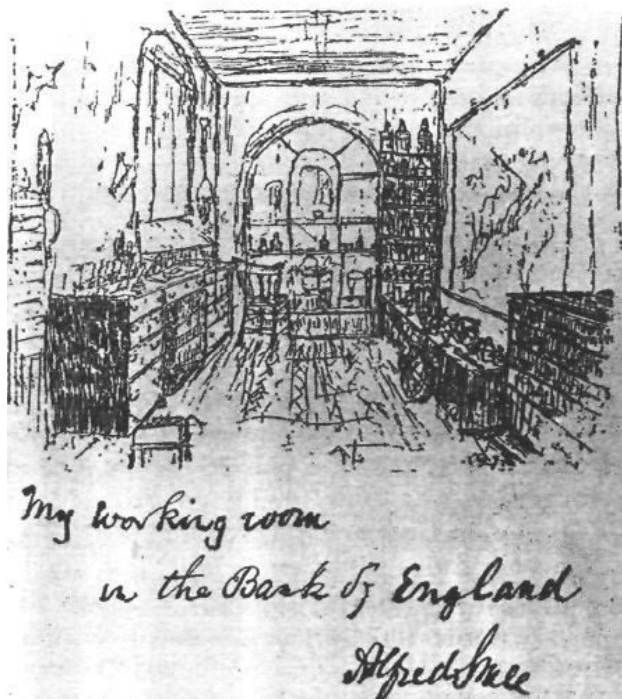 My working room
in the Bank of England
Alfred Smee